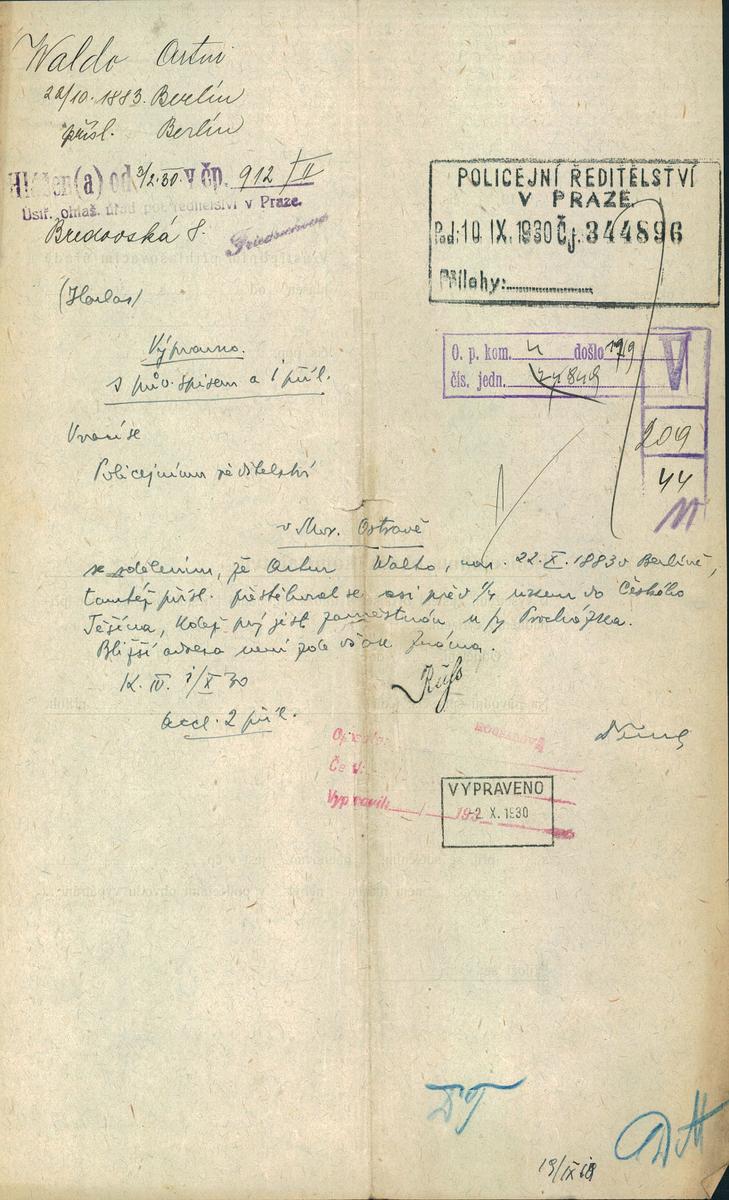 Waldo Artur
22/10. 1883. Berlín
přísl. Berlín
Hlášen(a) od 3/2.30. v čp. 912/II
Ústř. ohlaš. úřad pol. ředitelství v Praze.
Bredovská 8.
POLICEJNÍ ŘEDITELSTVÍ
V PRAZE.
Pod: 10. IX. 1930 Čj. 344896
Přílohy:
(Harlas)
O. p. kom. 4 došlo 17/9
čís. jedn.
V
209
44
Výpravno.
s pův. spisem a 1 příl.
Vrací se
Policejnímu ředitelství
v Mor. Ostravě
se sdělením, že Artur Waldo, nar. 22.X.1883 v Berlíně,
tamtéž přísl. přestěhoval se asi před 1/4 rokem do Českého
Těšína, kdež prý jest zaměstnán u fy Procházka.
Bližší adresa není zde však známa.
K. IV. 1/X 30
accl. 2 příl.
Opsáno:
Če
Vypravil: 193
VYPRAVENO
-2. X. 1930